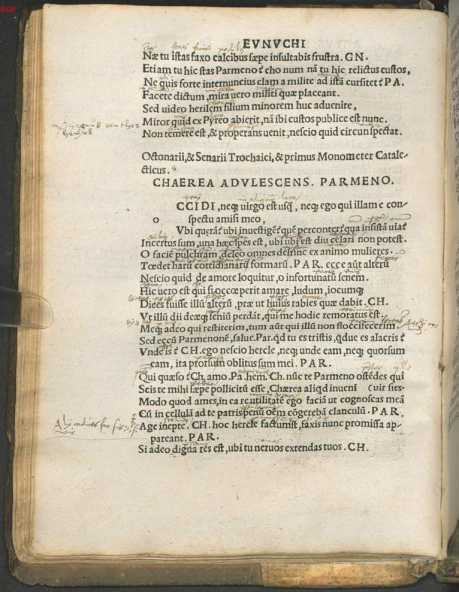 EVNVCHI
Næ tu istas faxo calcibus sæpe insultabis frustra. GN.
Etiam tu hic stas Parmeno? eho num nā tu hic relictus custos,
Ne quis forte internuncius clam a milite ad istā cursitet? PA.
Facete dictum, mira uero militi quæ placeant.
Sed uideo herilem filium minorem huc aduenire,
Miror quid ex Pyreo abierit, nā ibi custos publice est nunc.
Non temere est, & properans uenit, nescio quid circunspectat.
Octonarii, & Senarii Trochaici, & primus Monometer Catale-
cticus.
CHAEREA ADVLESCENS. PARMENO.
o CCIDI, neqȝ uirgo est usqȝ, neqȝ ego qui illam e con-
spectu amisi meo,
Vbi quærā? ubi inuestigē? quē perconter? qua insistā uiā?
Incertus sum, una hæc spes est, ubi ubi est diu celari non potest.
O faciē pulchram, deleo omnes dehinc ex animo mulieres.
Tædet harū cotidianarū formarū. PAR. ecce aūt alterū
Nescio quid de amore loquitur, o infortunatū senem.
Hic uero est qui si occœperit amare, ludum, iocumqȝ
Dices fuisse illū alterū, præ ut huius rabies quæ dabit. CH.
Vt illū dii deæqȝ seniū perdāt, qui me hodie remoratus est.
Meqȝ adeo qui restiterim, tum aūt qui illū non flocci fecerim
Sed eccū Parmenonē, salue. Par. qd tu es tristis, qdue es alacris?
Vnde is? CH. ego nescio hercle, neqȝ unde eam, neqȝ quorsum
eam, ita prorsum oblitus sum mei. PAR.
Qui quæso? Ch. amo. Pa. hem. Ch. nūc te Parmeno ostēdes qui
Scis te mihi sæpe pollicitū esse, Chærea aliqd inueni cuir sies
Modo quod ames, in ea re utilitatē ego faciā ut cognoscas meā
Cū in cellulā ad te patris penū oēm cōgerebā clanculū. PAR.
Age inepte. CH. hoc hercle factumst, faxis nunc promissa ap-
pareant. PAR.
Si adeo digna res est, ubi tu neruos extendas tuos. CH.